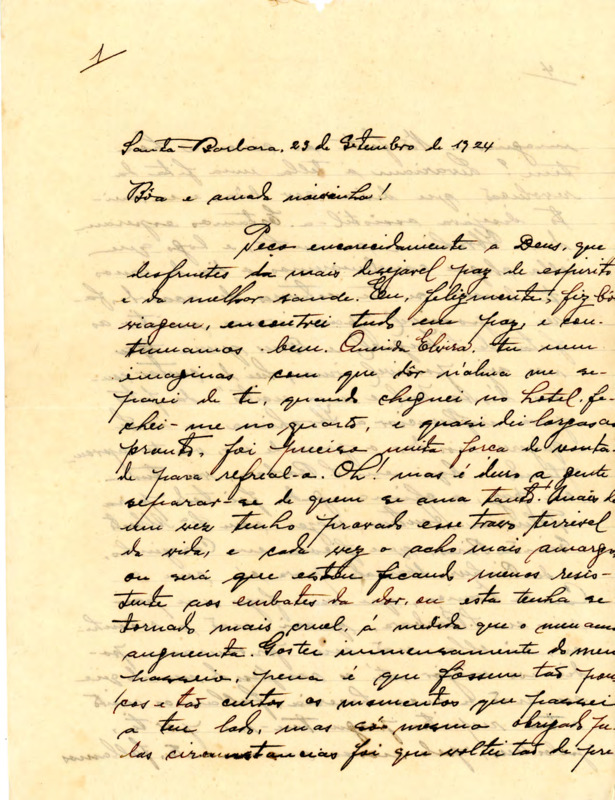 1
Santa Barbara, 23 de Setembro de 1924
Bôa e amada noivinha!
Peço encarecidamente a Deus, que
desfructes da mais desejavel paz de espirito
e da melhor saude. Eu, felizmente, fiz bôa
viagem, encontrei tudo em paz, e con-
tinuamos bem. Querida Elvira, tu nem
imaginas com que dôr n'alma me se-
parei de ti, quando cheguei no hotel, fe-
chei-me no quarto, e quasi dei largas ao
pranto, foi preciso muita força de vonta-
de para refreal-a. Oh! mas é duro a gente
separar-se de quem se ama tanto! Mais de
um vez tenho provado esse travo terrivel
da vida, e cada vez o acho mais amargo
ou será que estou ficando menos resis-
tente aos embates da dor, ou esta tenha se
tornado mais cruel, á medida que o meu amor
augmenta. Gostei immensamente do meu
passeio, pena é que fossem tão pou-
cos e tão curtos os momentos que passei
a teu lado, mas só mesmo obrigado pe-
las circumstancias foi que voltei tão de pre